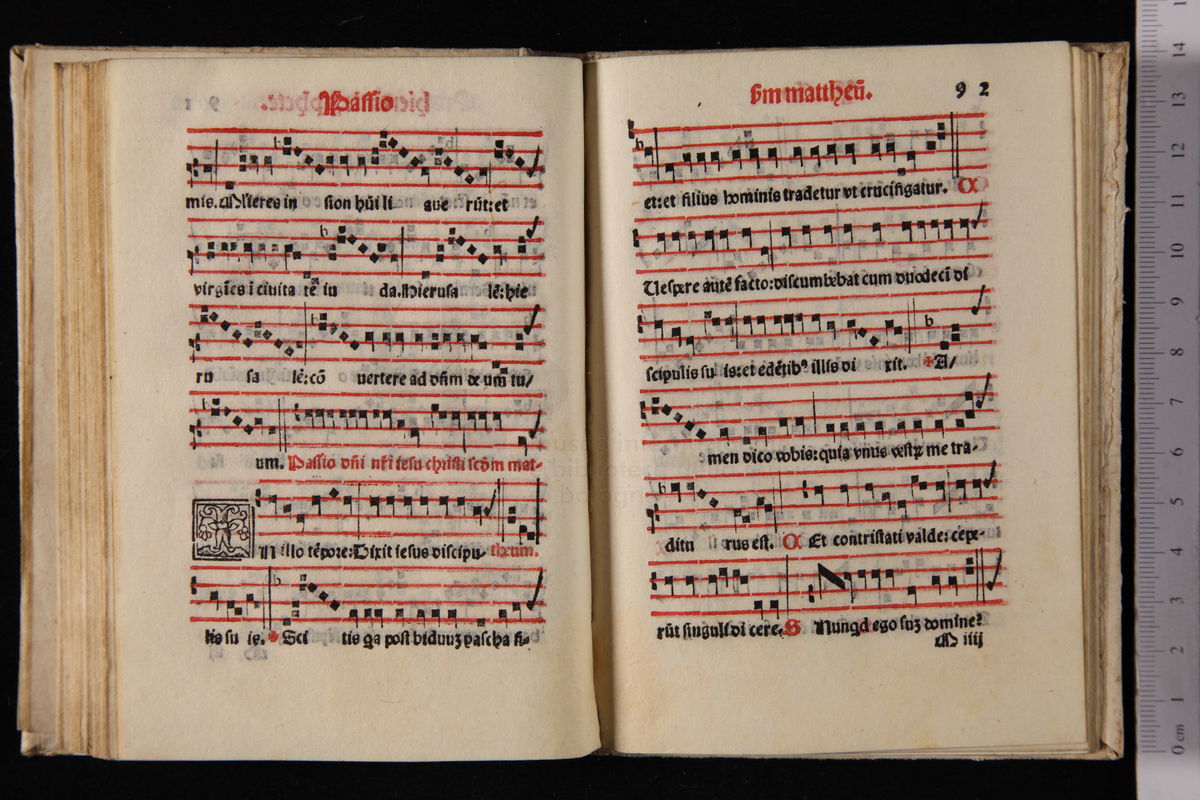 Passio
mis. Mĺieres in sion hũi li aue rũt: et
virgĩes ĩ ciuita tẽ iu da. Hierusa lẽ: hie
ru sa lẽ: cõ uertere ad dñm de um tu/
um. Passio dñi nr̃i iesu christi scđm mat-
IN illo tẽpore: Dixit iesus discipu- theum.
lis su is. ✠ Sci tis qa post biduuꝫ pascha fi-
ẜm mattheũ. 92
et: et filius hominis tradetur vt crucifigatur. C
Uespere autẽ facto: discumbebat cum duodecĩ di
scipulis su is: et edẽtibꝰ illis di xit. ✠ A/
men dico vobis: quia vnus vestrꝫ me tra-
ditu rus est. C Et contristati valde: cepe-
rũt singuli di cere. S Nunqd ego suꝫ domine?
M iiij
14
13
12
11
10
9
8
7
6
5
4
3
2
1
0 cm